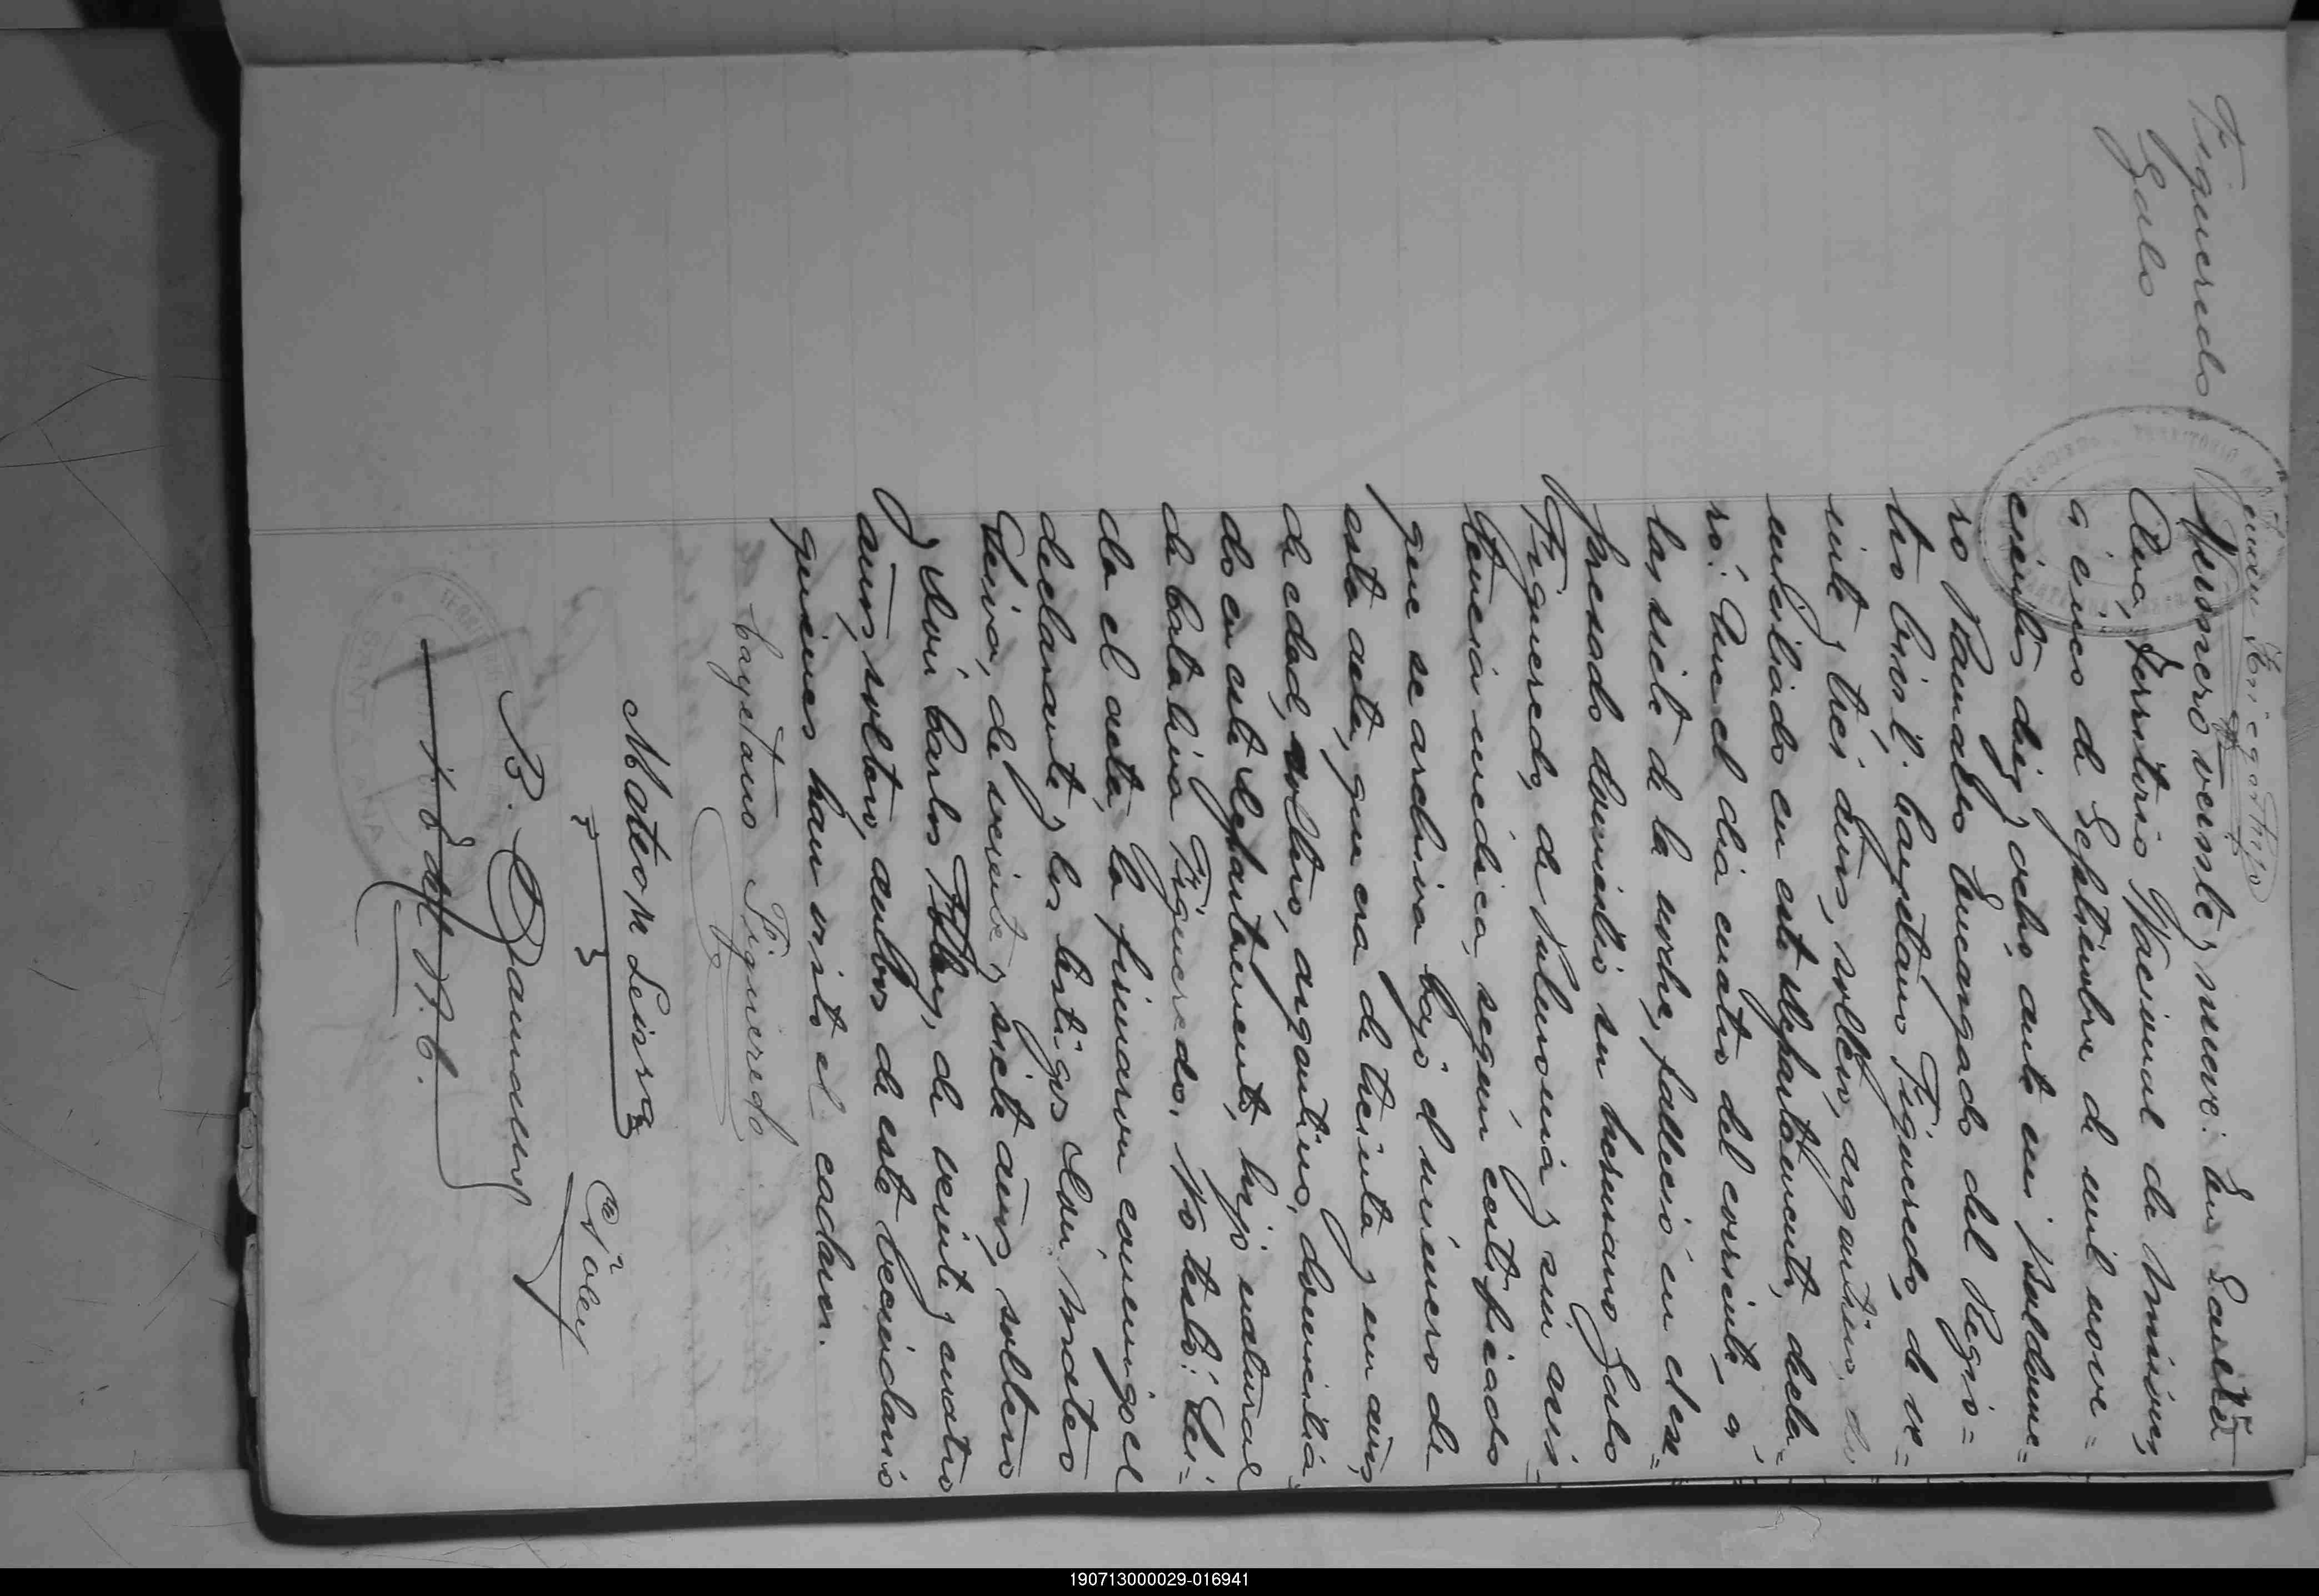 Figueredo
Galo
15
Número veinte y nueve: En Santa
Ana, Territorio Nacional de Misiones,
a cinco de Septiembre de mil nove=
cientos diez y ocho, ante mi
Encargado del Regis=
tro Civil: Cayetano Figueredo, de ve=
inte y tres años, soltero, argentino, do
miciliado en este departamento, decla=
ró: Que el día cuatro del corriente, a
las siete de la noche, falleció en el ex=
presado domicilio su hermano Galo
Figueredo, de pulmonía y sin asis=
tencia médica, según certificado
que se archiva bajo el número de
esta acta, que era de treinta y un años
de edad, soltero, argentino, domicilia
do en este departamento, hijo natural
de Catalina Figueredo. No testó: Leí=
da el acta, la firmaron conmigo el
declarante y los testigos Don Mateo
Leiva, de veinte y siete años, soltero
y Don Carlos, de veinte y cuatro
años, soltero, ambos de este vecindario
quienes han visto el cadaver.
Cayetano Figueredo
Mateo Leiva
B.
J. Edo. R. C.
TERRITORIO
SANTA ANA
190713000029-016941